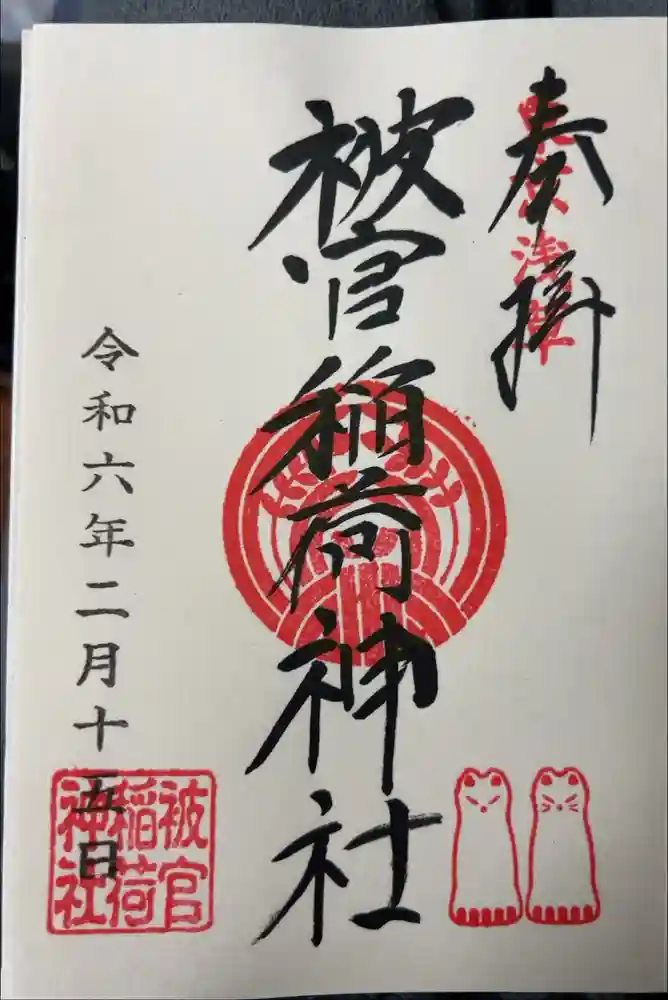 奉拝
東京浅草
被官稲荷神社
令和六年二月十五日
被官
稲荷
神社